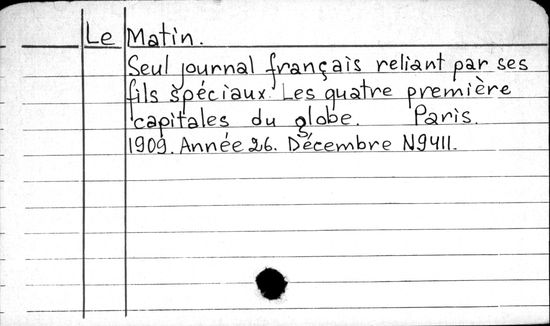 Le Matin.
Seul journal français reliant par ses
fils špéciaux Les quatre première
capitales du globe. Paris.
1909. Année 26. Décembre N9411.